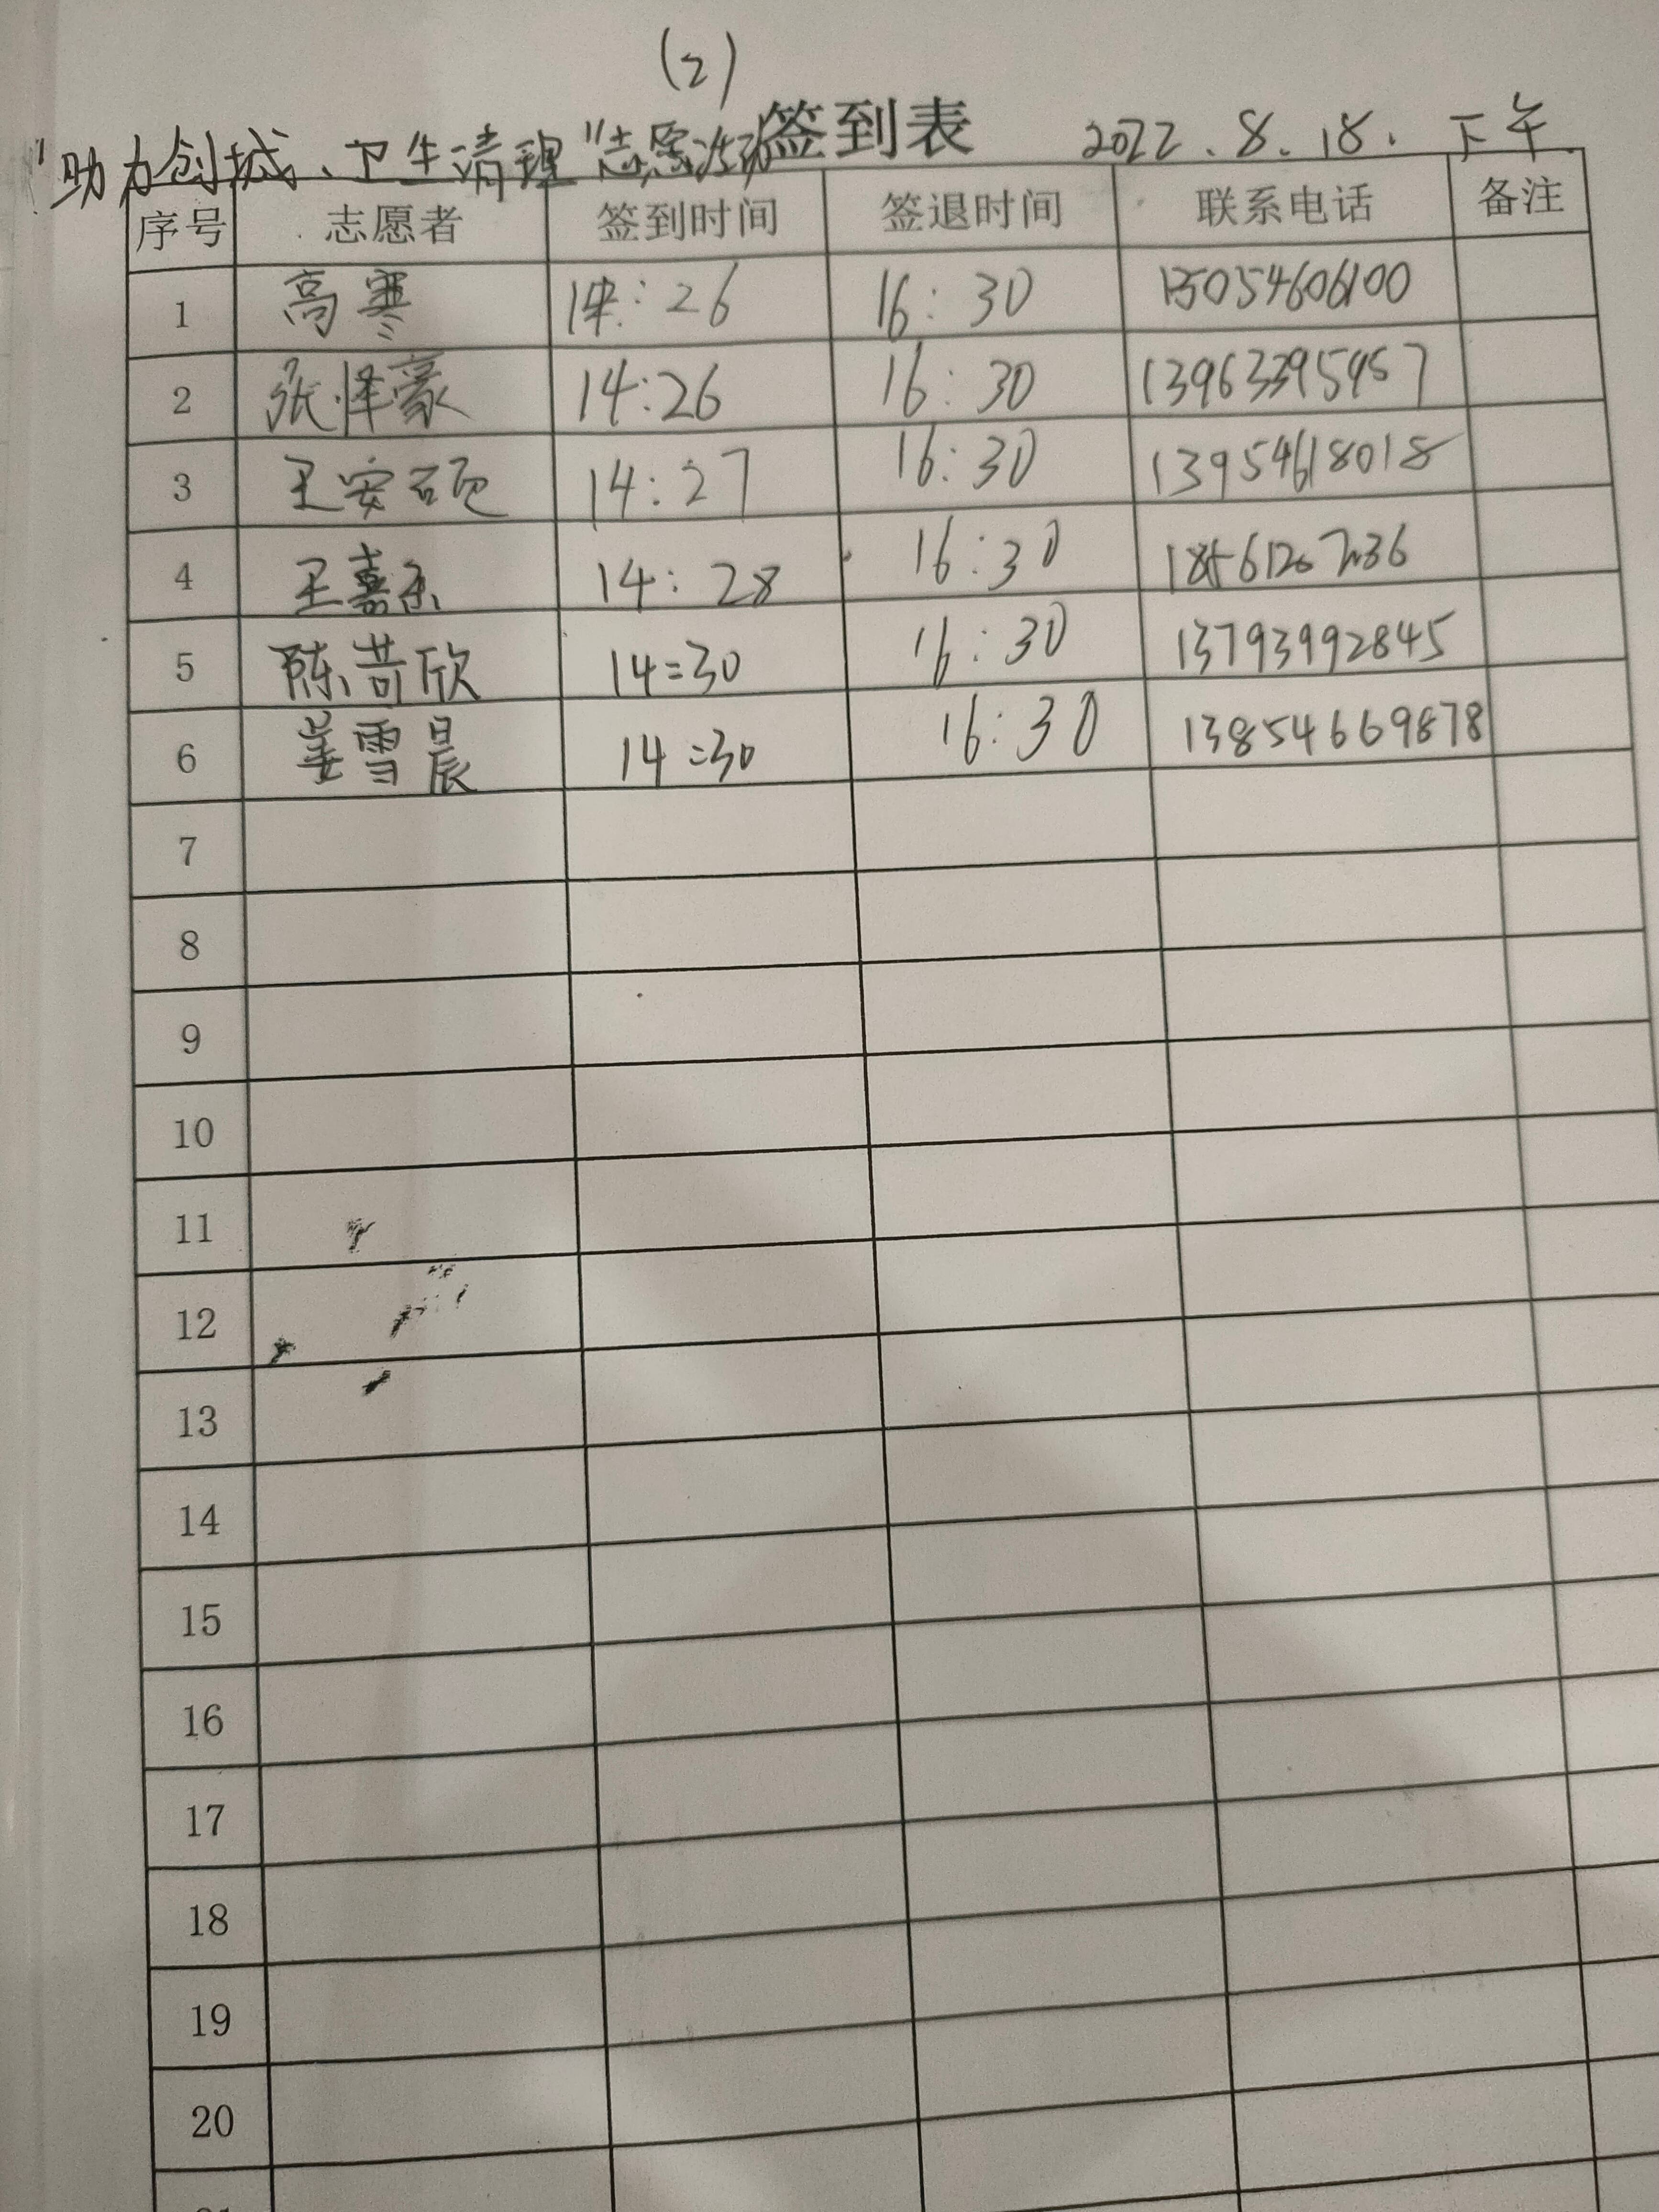 (2)
"助力创城、卫生清理"志愿活动签到表 2022.8.18.下午
序号 志愿者 签到时间 签退时间 联系电话 备注
1 高寒 14:26 16:30 15054606100
2 张怿豪 14:26 16:30 13963395957
3 王安硕 14:27 16:30 13954618018
4 王嘉禾 14:28 16:30
5 陈苛欣 14:30 16:30 13793992845
6 姜雪晨 14:30 16:30 13854669878
7
8
9
10
11
12
13
14
15
16
17
18
19
20